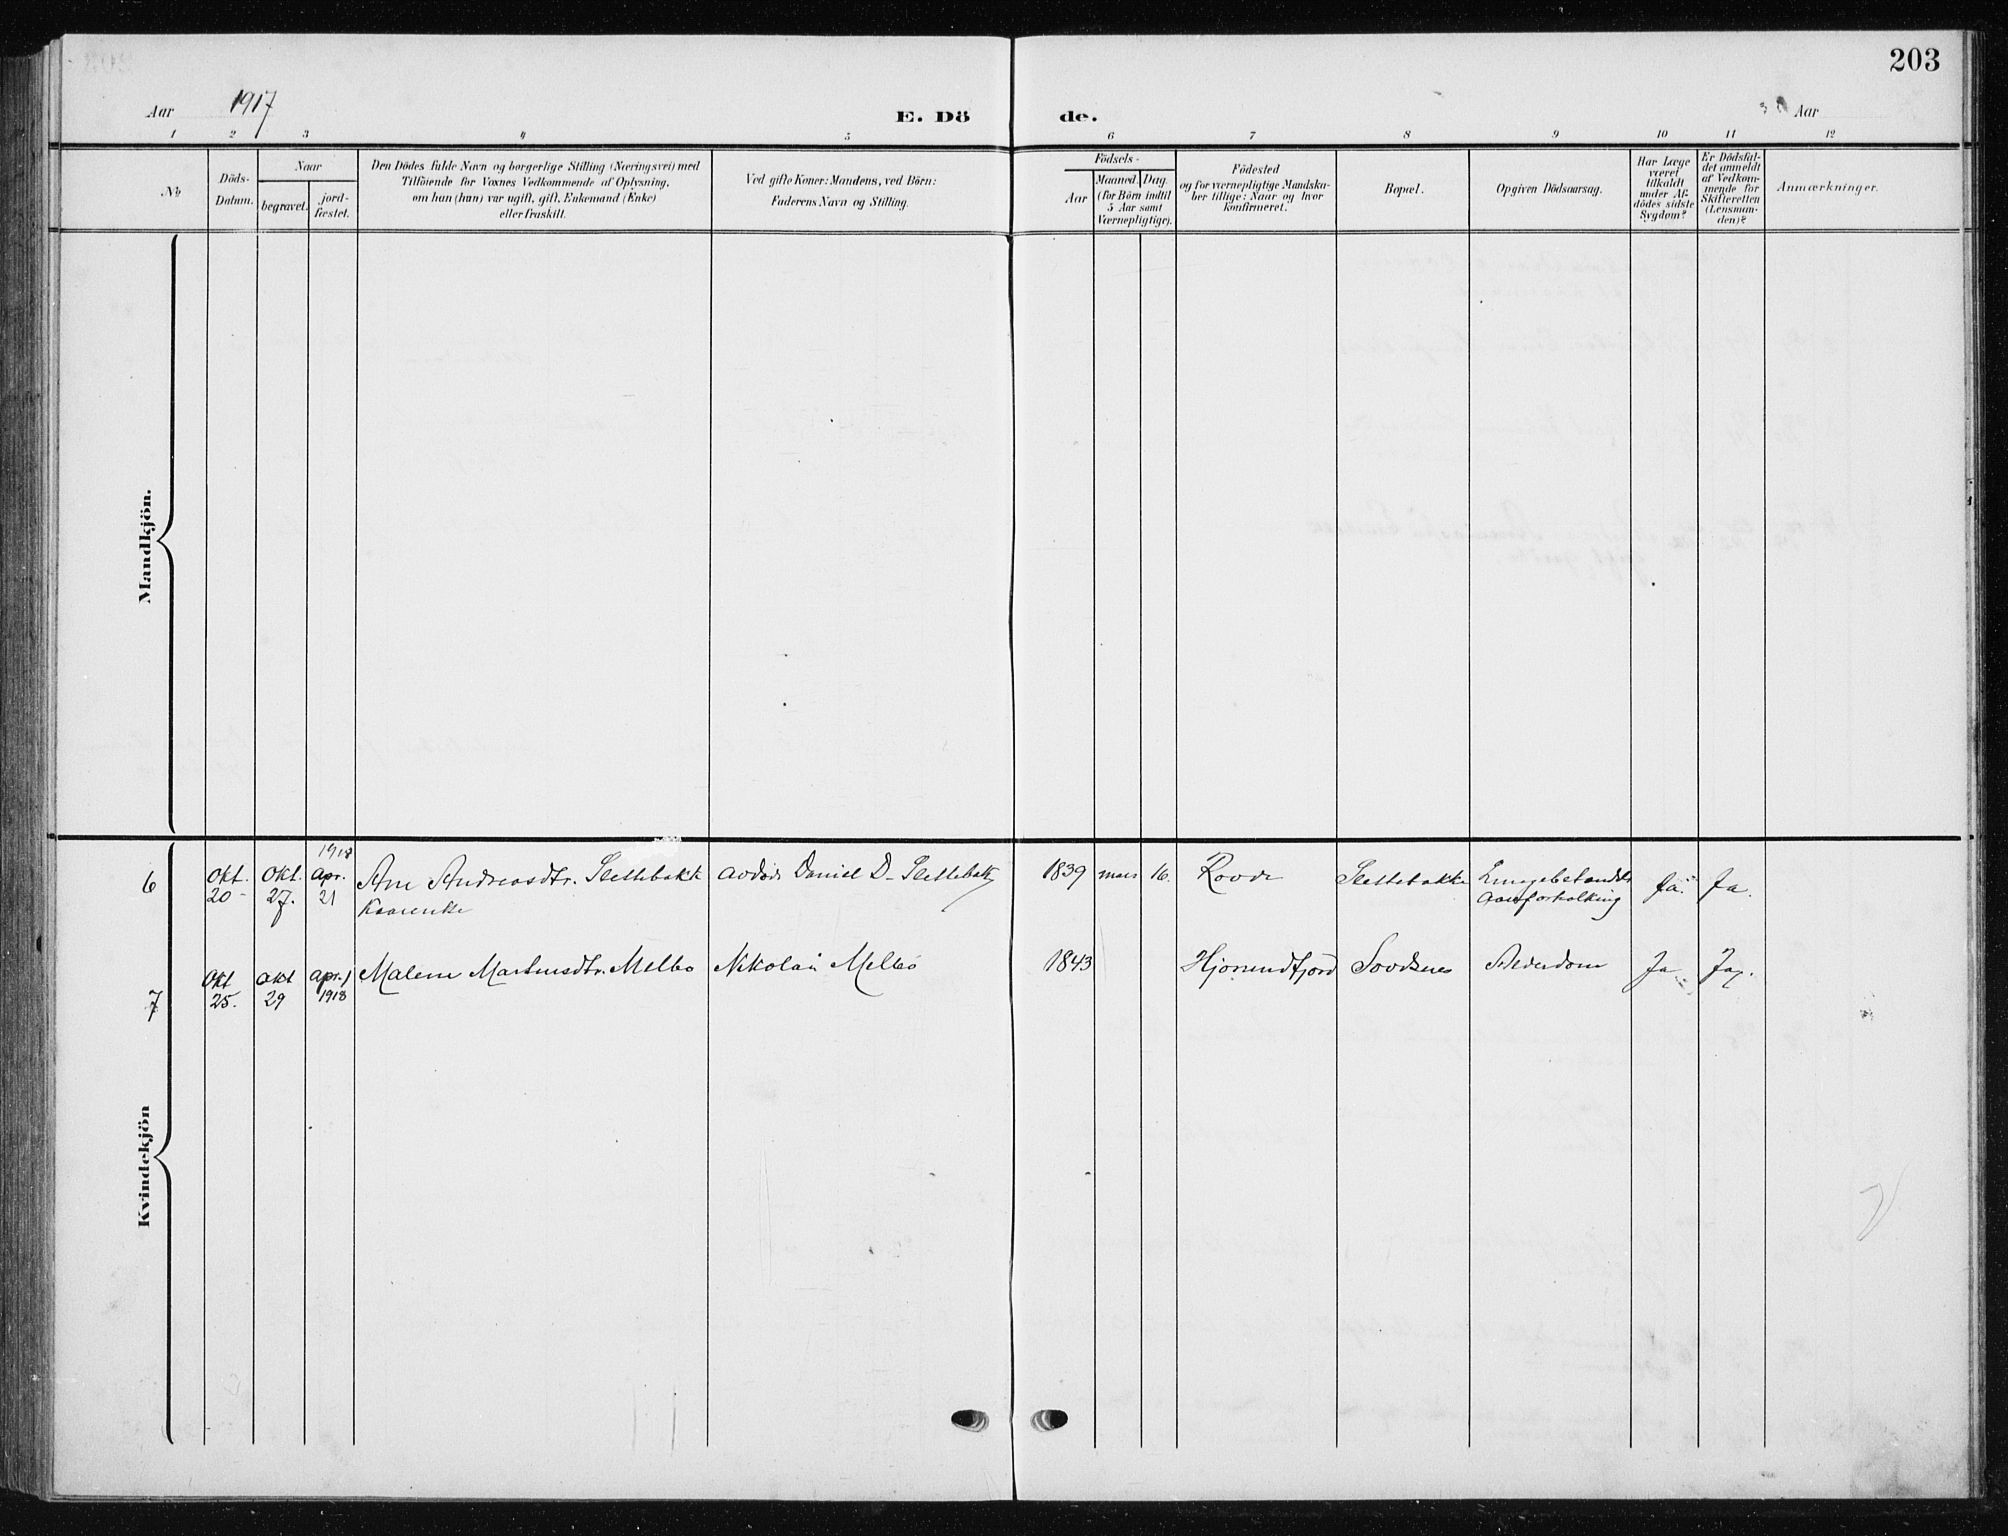 203
Aar 1917
E. Dö de.
Aar
1 2 3 4 5 6 7 8 9 10 11 12
No
Döds-
Datum.
Naar
begravet.
jord-
fæstet.
Den Dödes fulde Navn og borgerlige Stilling (Næringsvei) med
Tilföiende for Voxnes Vedkommende af Oplysning,
om hun (han) var ugift, gift, Enkemand (Enke)
eller fraskilt.
Ved gifte Koner: Mandens, ved Börn:
Faderens Navn og Stilling.
Födsels-
Aar
Maaned. Dag.
(for Börn indtil
5 Aar samt
Værnepligtige).
Födested
og for værnepligtige Mandska-
ber tillige: Naar og hvor
konfirmeret.
Bopæl.
Opgiven Dödsaarsag.
Har Læge
været
tilkaldt
under Af-
dödes sidste
Sygdom?
Er Dödsfal-
det anmeldt
af Vedkom-
mende for
Skifteretten
(Lensman-
den)?
Anmærkninger.
Mandkjön.
Kvindekjön
1918
6 Okt. Okt. Apr. Ane Andreasdtr. Slettebakk avdøde Daniel D. Slettebakk 1839 mars 16. Rovde Slettebakke Ja. Ja.
20 27. 21 Kaarenke
7 Okt Okt Apr. Malene Martinsdtr. Melbø Nikolai Melbø 1843 Hjørundfjord Sovdsnes Alderdom Ja Ja.
25. 29 1918